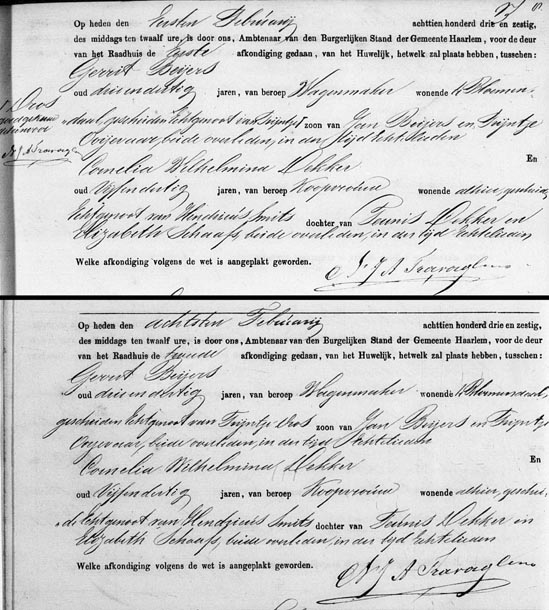 Op heden den Eersten Februarij achttien honderd drie en zestig,
des middags ten twaalf ure, is door ons, Ambtenaar van den Burgerlijken Stand der Gemeente Haarlem, voor de deur
van het Raadhuis de Eerste afkondiging gedaan, van het Huwelijk, hetwelk zal plaats hebben, tusschen:
Gerrit Beijers
oud drieendertig jaren, van beroep Wagenmaker wonende te Bloemen-
daal, gescheiden Echtgenoot van Trijntje zoon van Jan Beijers en Trijntje
Ooijevaar, beide overleden, in der tijd Echtelieden
En
Cornelia Wilhelmina Dekker
oud Vijfendertig jaren, van beroep Koopvrouw wonende alhier, geschei-
Echtgenoot van Hendricus Smits dochter van Teunis Dekker en
Elizabeth Schaafs, beide overleden, in der tijd Echtelieden
Welke afkondiging volgens de wet is aangeplakt geworden.
Vos
goedgekeurd
A Travaglino
N J A Travaglino
Op heden den achtsten Februarij achttien honderd drie en zestig,
des middags ten twaalf ure, is door ons, Ambtenaar van den Burgerlijken Stand der Gemeente Haarlem, voor de deur
van het Raadhuis de tweede afkondiging gedaan, van het Huwelijk, hetwelk zal plaats hebben, tusschen:
Gerrit Beijers
oud drieendertig jaren, van beroep Wagenmaker wonende te Bloemendaal,
gescheiden Echtgenoot van Trijntje Vos zoon van Jan Beijers en Trijntje
Ooijevaar, beide overleden, in der tijd Echtelieden
En
Cornelia Wilhelmina Dekker
oud Vijfendertig jaren, van beroep Koopvrouw wonende alhier, geschei-
de Echtgenoot van Hendricus Smits dochter van Teunis Dekker en
Elizabeth Schaafs, beide overleden, in der tijd Echtelieden
Welke afkondiging volgens de wet is aangeplakt geworden.
N J A Travaglino